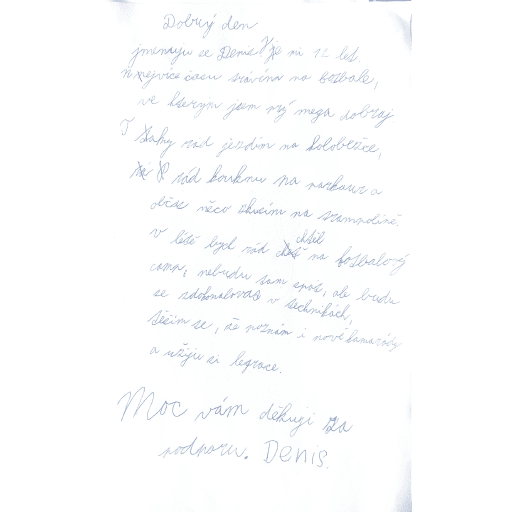 Dobrý den
jmenuju se Denis je mi 12 let.
nejvíce času trávím na fotbale,
ve kterým jsem prý mega dobrej
Taky rád jezdím na koloběžce,
rád kouknu na parkour a
občas něco zkusím na trampolíně.
v létě bych rád chtěl na fotbalový
camp, nebudu tam spát, ale budu
se zdokonalovat v technikách,
těším se, že poznám i nové kamarády
a užiju si legrace.
Moc vám děkuji za
podporu. Denis.